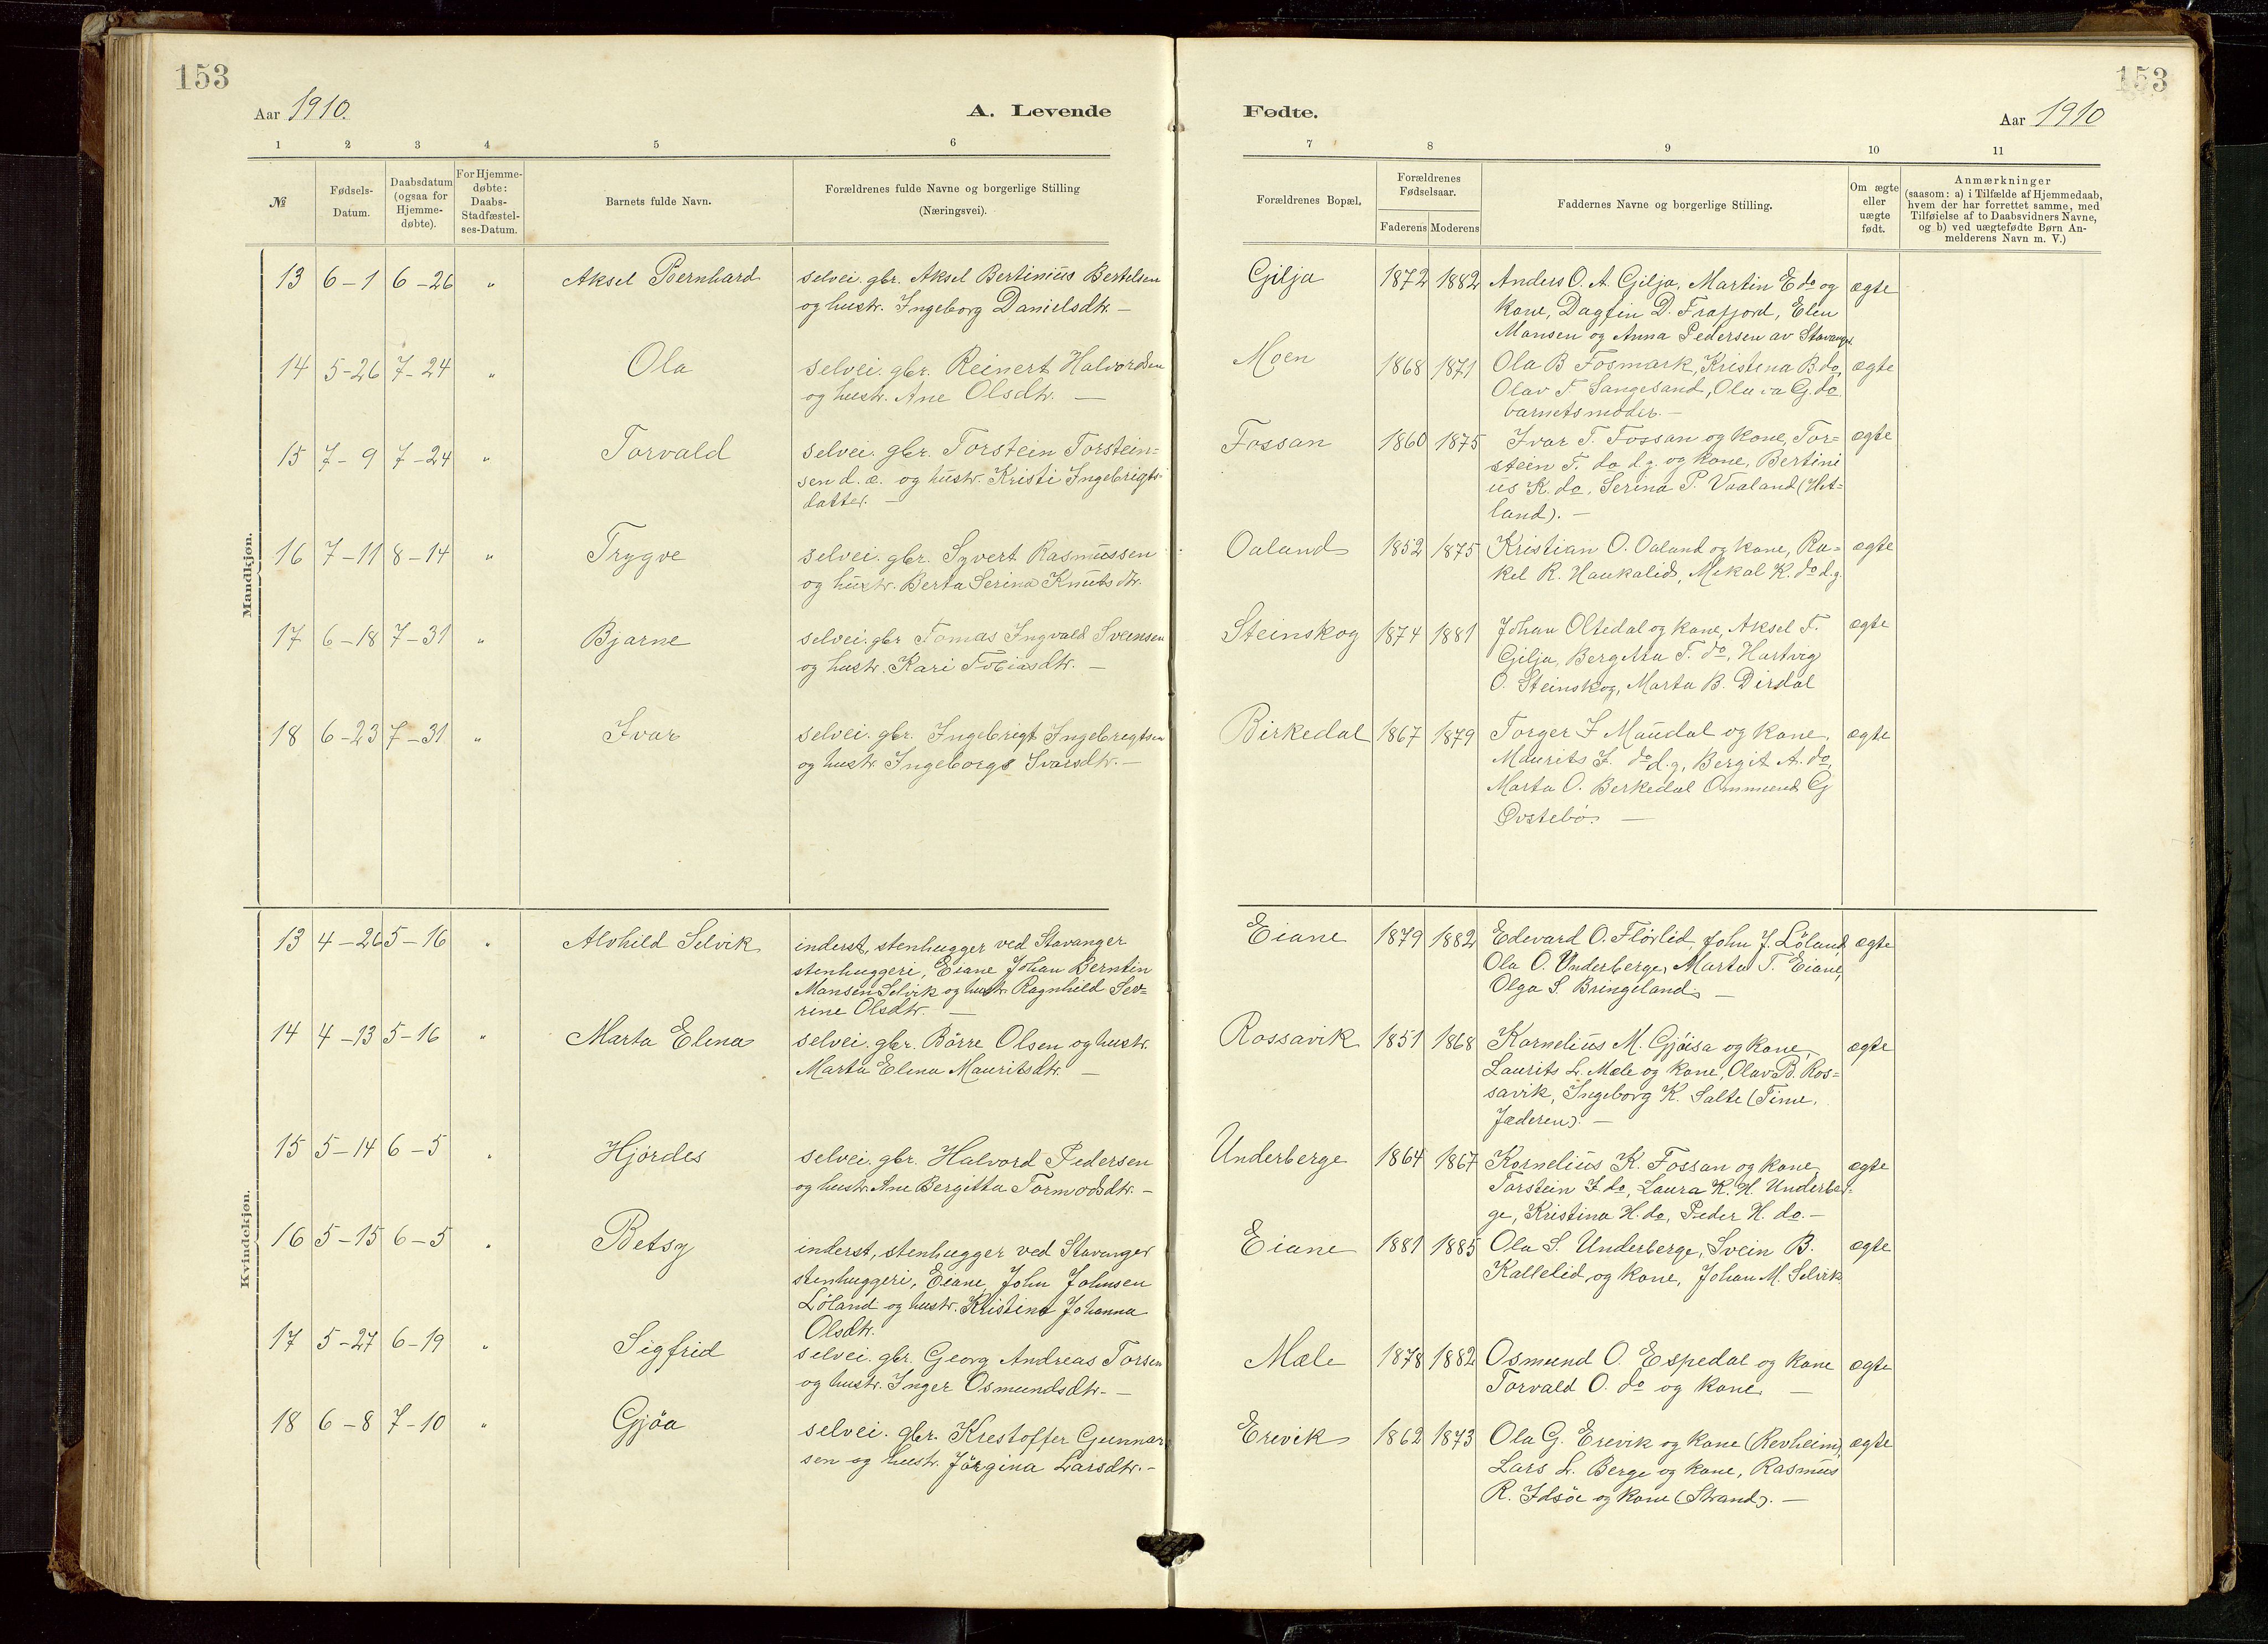 153
Aar 1910.
A. Levende
1 2 3 4 5 6
№
Fødsels-
Datum.
Daabsdatum
(ogsaa for
Hjemme-
døbte).
For Hjemme-
døbte:
Daabs-
Stadfæstel-
ses-Datum.
Barnets fulde Navn.
Forældrenes fulde Navne og borgerlige Stilling
(Næringsvei).
Mandkjøn.
13 6-1 6-26 " Aksel Bernhard selvei. gbr. Aksel Bertinius Bertelsen
og hustr. Ingeborg Danielsdtr. —
14 5-26 7-24 " Ola selvei. gbr. Reinert Halvordsen
og hustr. Ane Olsdtr. —
15 7-9 7-24 " Torvald selvei. gbr. Torstein Torstein=
sen d. æ. og hustr. Kristi Ingebrigts-
datter. —
16 7-11 8-14 " Trygve selvei. gbr. Syvert Rasmussen
og hustr. Berta Serina Knutsdtr.
17 6-18 7-31 " Bjarne selvei. gbr. Tomas Ingvald Sveinsen
og hustr. Kari Tobiasdtr. —
18 6-23 7-31 " Ivar selvei. gbr. Ingebrigt Ingebrigtsen
og hustr. Ingeborg Ivarsdtr. —
Kvindekjøn.
13 4-26 5-16 " Alvhild Selvik inderst, stenhugger ved Stavanger
stenhuggeri, Eiane Johan Berntin
Mansen Selvik og hustr. Ragnhild Sev=
rine Olsdtr. —
14 4-13 5-16 " Marta Elena selvei. gbr. Börre Olsen og hustr.
Marta Elena Mauritsdtr. —
15 5-14 6-5 " Hjördes selvei. gbr. Halvord Pedersen
og hustr. Ane Bergitta Tormodsdtr. —
16 5-15 6-5 " Betsy inderst, stenhugger ved Stavanger
stenhuggeri, Eiane, John Johnsen
Löland og hustr. Kristina Johanna
Olsdtr.
17 5-27 6-19 " Sigfrid selvei. gbr. Georg Andreas Torsen
og hustr. Inger Osmundsdtr. —
18 6-8 7-10 " Gjöa selvei. gbr. Krestoffer Gunnar
sen og hustr. Jörgina Larsdtr. —
153
Fødte.
Aar 1910
7 8 9 10 11
Forældrenes Bopæl.
Forældrenes
Fødselsaar.
Faderens Moderens
Faddernes Navne og borgerlige Stilling.
Om ægte
eller
uægte
født.
Anmærkninger
(saasom: a) i Tilfælde af Hjemmedaab,
hvem der har forrettet samme, med
Tilføielse af to Daabsvidners Navne,
og b) ved uægtefødte Børn An-
melderens Navn m. V.)
Gilja 1872 1882 Anders O. A. Gilja, Martin E do og ægte
kone, Dagfin D. Frafjord, Elen
Mansen og Anna Pedersen av Stavanger
Moen 1868 1871 Ola B Fosmark, Kristina B. do, ægte
Olav T Sangesand, G. do.
barnets moder. —
Fossan 1860 1875 Ivar T. Fossan og kone, Tor= ægte
stein T. do d. y. og kone, Bertini
us K. do, Serina P. Vaaland (Het-
land). —
Oaland 1852 1875 Kristian O. Oaland og kone, Ra= ægte
kel R. Haukalid, Mikal K. do d. y.
Steinskog 1874 1881 Johan Oltedal og kone, Aksel T. ægte
Gilja, Bergitta T. do, Hartvig
O. Steinskog, Marta B. Dirdal
Birkedal 1867 1879 Torger I Maudal og kone, ægte
Maurits I. do d. y, Bergit A. do,
Marta O. Berkedal Ommund G
Øvstebö. —
Eiane 1879 1882 Edevard O. Flörlid, John J. Löland, ægte
Ola O. Underberge, Marta T. Eiane,
Olga S. Bringeland. —
Rossavik 1851 1868 Kornelius M. Gjöisa og kone, ægte
Laurits L. Mæle og kone, Olav B. Ros=
savik, Ingeborg K. Salte (Time,
Jæderen). —
Underberge 1864 1867 Kornelius K. Fossan og kone, ægte
Torstein I. do, Laura K. H. Underber=
ge, Kristina H. do, Peder H. do. —
Eiane 1881 1885 Ola S. Underberge, Svein B. ægte
Kallelid og kone, Johan M. Selvik
Mæle 1878 1882 Osmund O. Espedal og kone ægte
Torvald O. do og kone. —
Erevik 1862 1873 Ola G. Erevik og kone (Revheim), ægte
Lars L. Berge og kone, Rasmus
R. Idsöe og kone (Strand). —